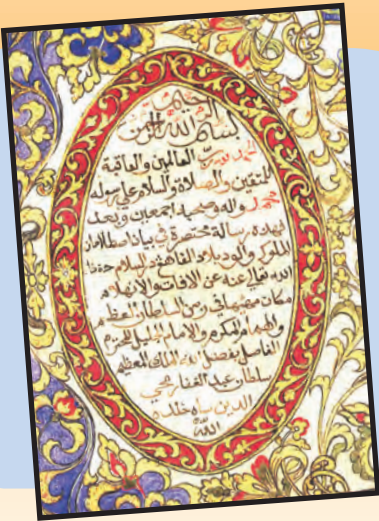 بسم الله الرحمن الرحيم
الحمد لله رب العالمين والعاقبة
للمتقين والصلاة والسلام على رسوله
محمد وآله وصحبه اجمعين وبعد
فهذه رسالة مختصرة في بيان
الملوك
الله تعالى عنه عن الافات
مكان في زمن السلطان العظيم
والهمام المكرم والامام الجليل المحترم
الفاضل بفضل الله الملك المعظم
سلطان عبد الغفار محي
الدين شاه خلد
الله